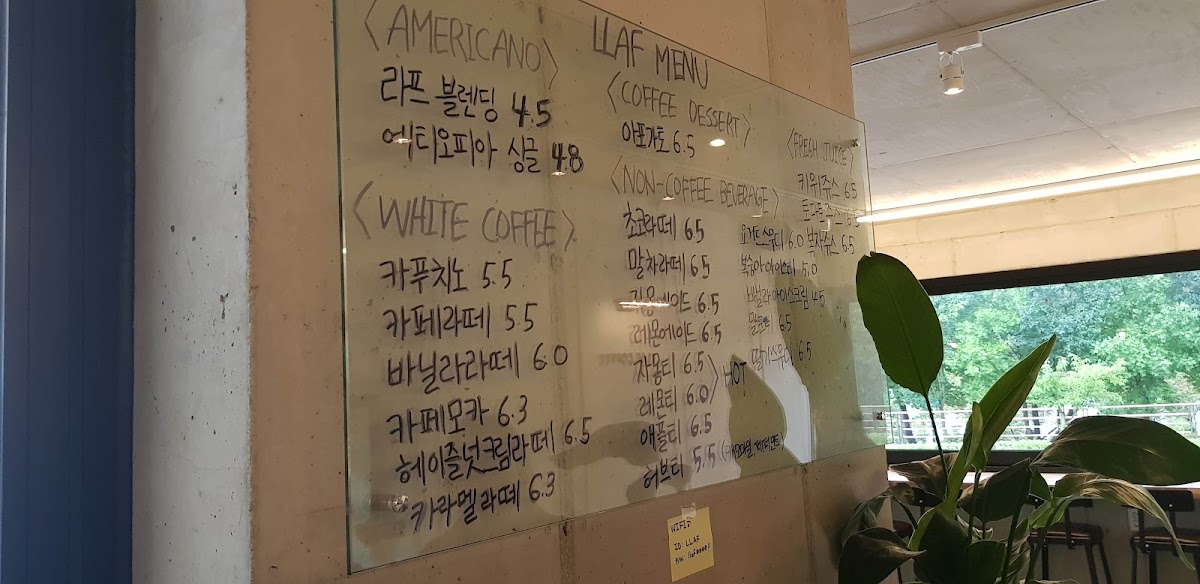 <AMERICANO>
라프 블렌딩 4.5
에티오피아 싱글 4.8
<WHITE COFFEE>
카푸치노 5.5
카페라떼 5.5
바닐라라떼 6.0
카페모카 6.3
헤이즐넛크림라떼 6.5
카라멜라떼 6.3
LLAF MENU
<COFFEE DESSERT>
아포가토 6.5
<NON-COFFEE BEVERAGE>
초코라떼 6.5
말차라떼 6.5
자몽에이드 6.5
레몬에이드 6.5
자몽티 6.5
레몬티 6.0
HOT
애플티 6.5
허브티 5.5 (캐모마일, 페퍼민트)
요거트스무디 6.0
복숭아아이스티 5.0
바닐라아이스크림 4.5
6.5
딸기스무디 6.5
<FRESH JUICE>
키위쥬스 6.5
토마토쥬스 6.5
쥬스 6.5
WIFI
ID: LLAF